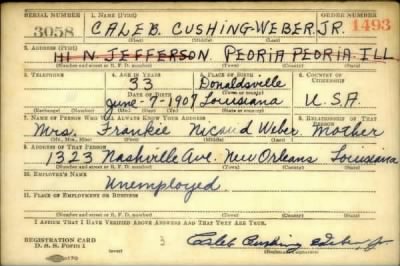 SERIAL NUMBER 1. NAME (Print) ORDER NUMBER
3058 CALEB. CUSHING-WEBER, JR. 1493
(First) (Middle) (Last)
2. ADDRESS (Print)
HI N. JEFFERSON. PEORIA PEORIA. ILL
(Number and street or R. F. D. number) (Town) (County) (State)
3. TELEPHONE 4. AGE IN YEARS 5. PLACE OF BIRTH 6. COUNTRY OF CITIZENSHIP
33 Donaldsville
DATE OF BIRTH (Town or county)
June-7-1907 Louisiana U.S.A.
(Exchange) (Number) (Mo.) (Day) (Yr.) (State or country)
7. NAME OF PERSON WHO WILL ALWAYS KNOW YOUR ADDRESS 8. RELATIONSHIP OF THAT PERSON
Mrs. Frankie Weber Mother
(Mr., Mrs., Miss) (First) (Middle) (Last)
9. ADDRESS OF THAT PERSON
1323 Nashville Ave. New Orleans Louisiana
(Number and street or R. F. D. number) (Town) (County) (State)
10. EMPLOYER'S NAME
Unemployed
11. PLACE OF EMPLOYMENT OR BUSINESS
(Number and street or R. F. D. number) (Town) (County) (State)
I AFFIRM THAT I HAVE VERIFIED ABOVE ANSWERS AND THAT THEY ARE TRUE.
REGISTRATION CARD
D. S. S. Form 1 Caleb Cushing Weber, Jr
(Registrant's signature)